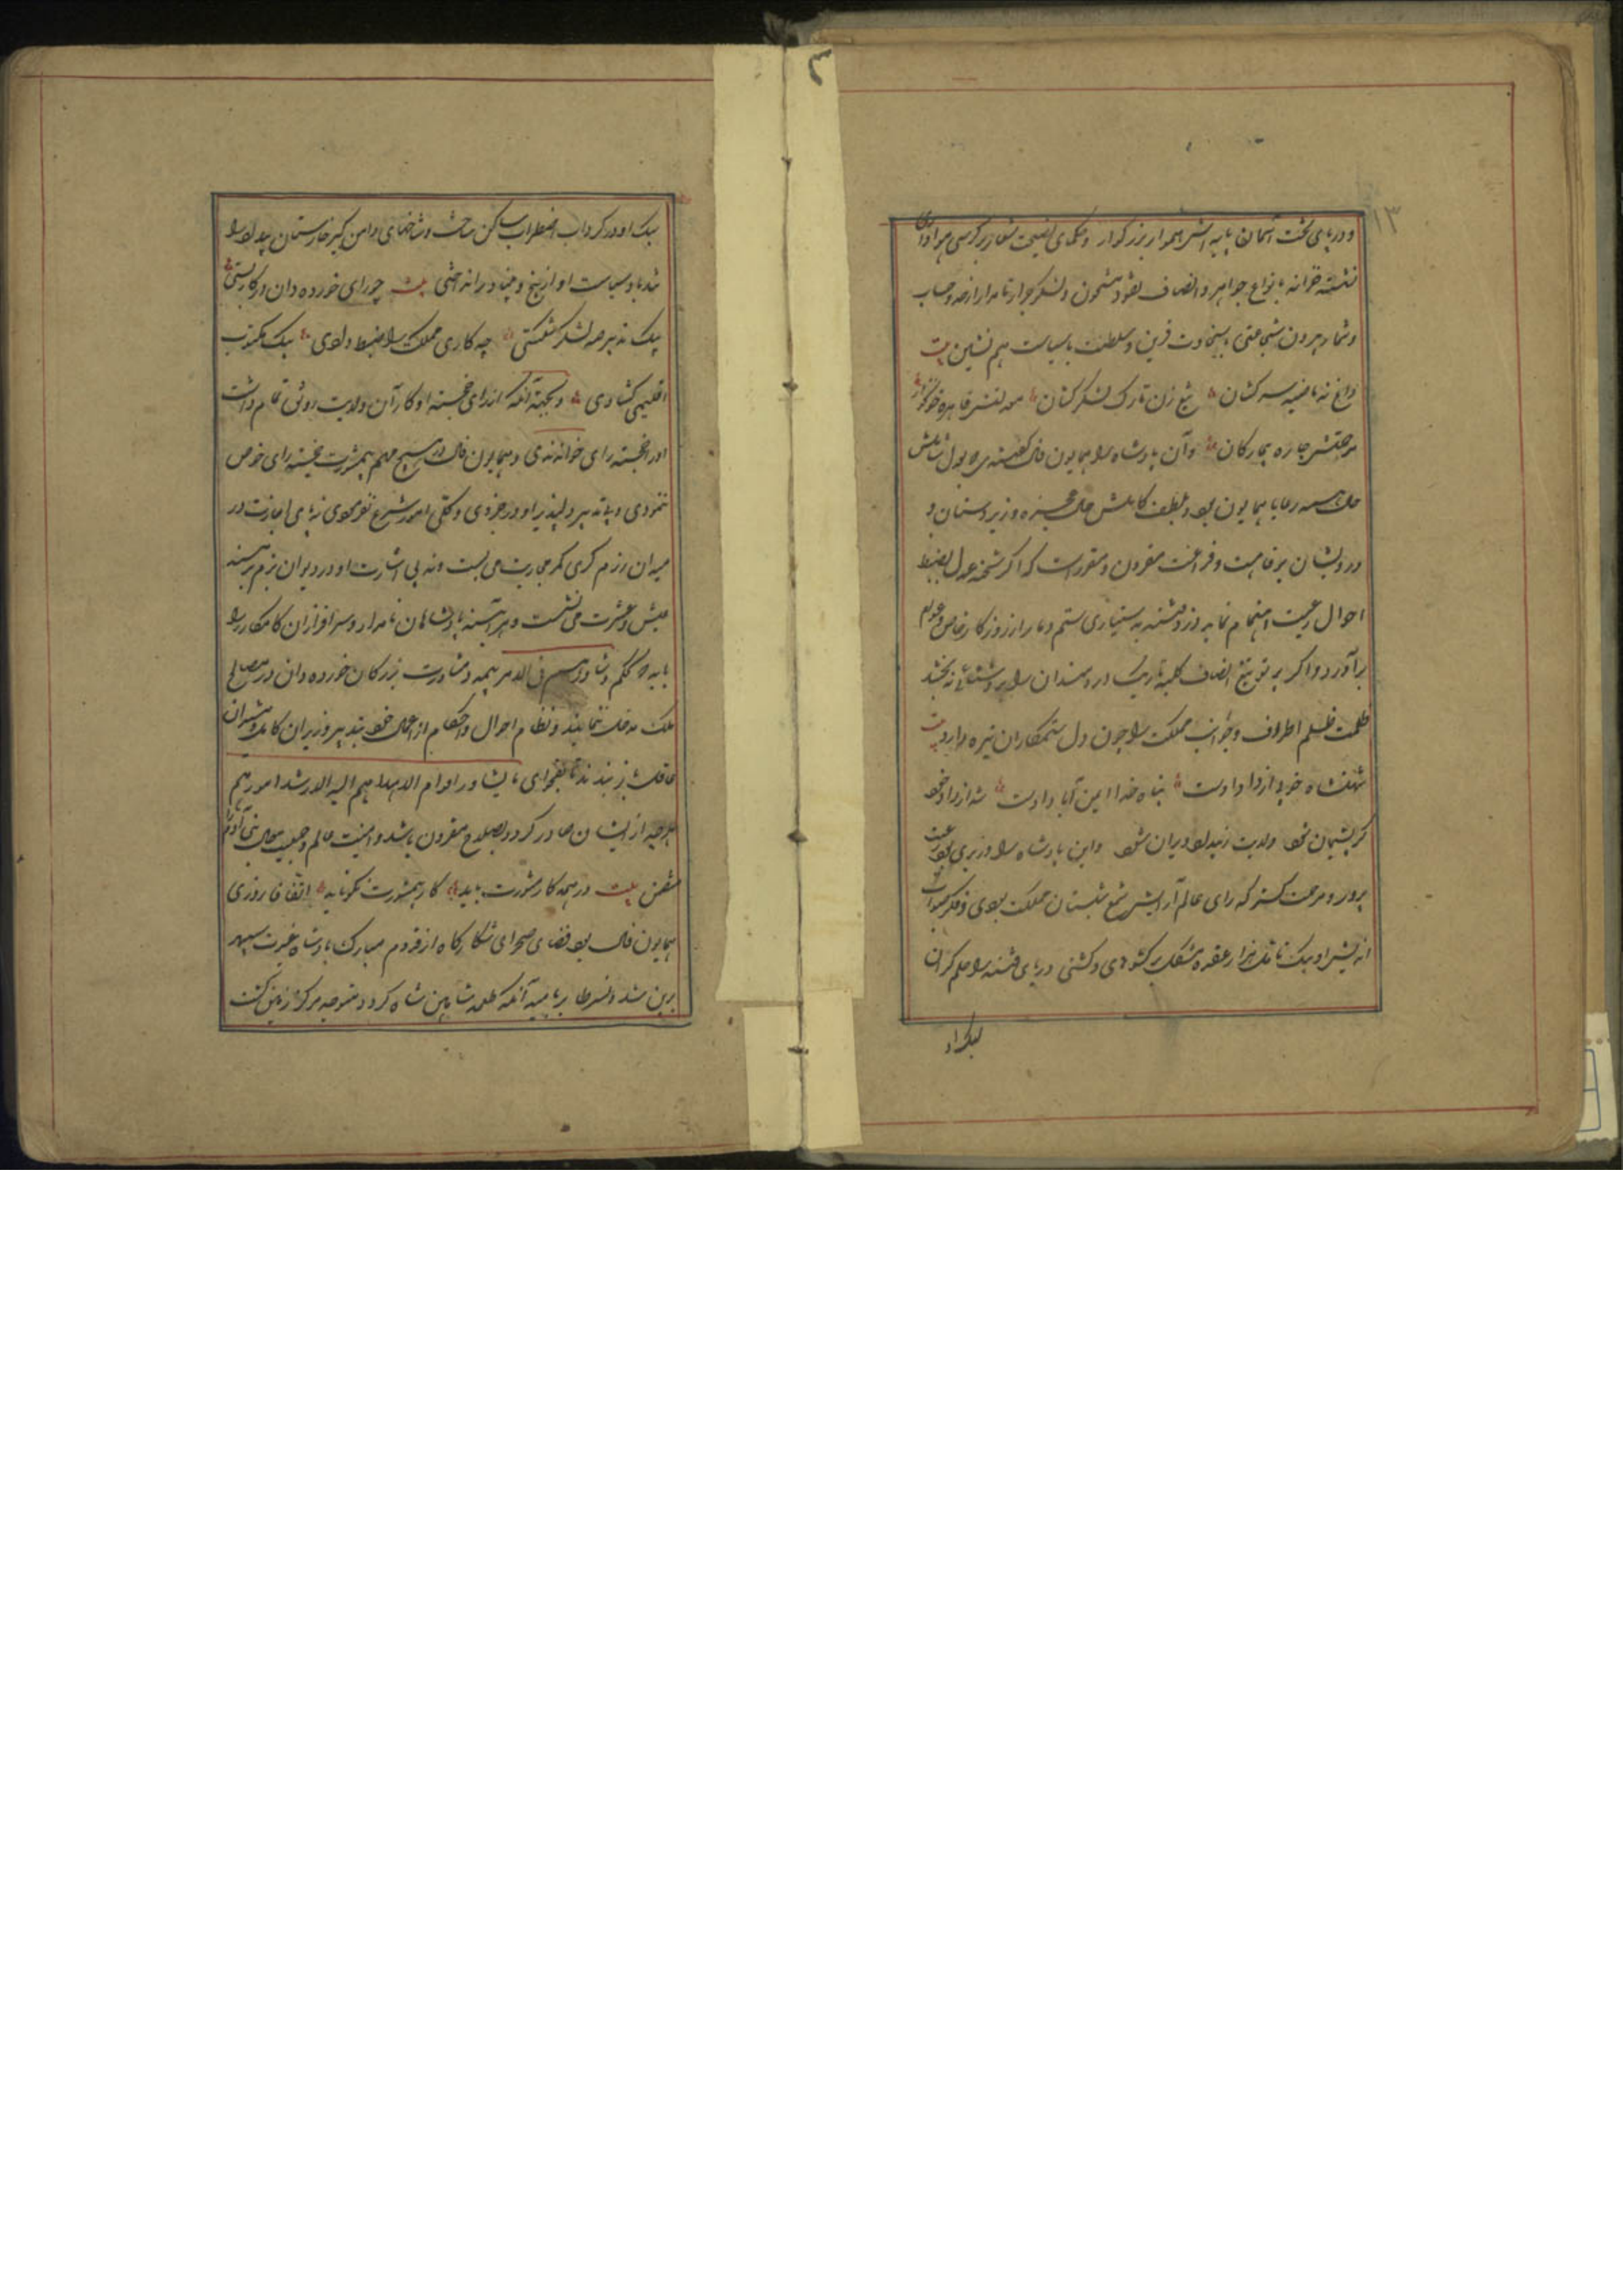 ۱۳
و در پای تخت آسمان پایه اش امرای بزرگوار و حکمای نصیحت شعار بر کرسی هواداری
نشسته خزانه بانواع جواهر و اصناف نقود مشحون و لشکر جرار نامدار از حد و حساب
و شمار بیرون شجاعتی با سخاوت قرین و سلطنت با سیاست هم نشین بیت
داغ نه ناصیه سرکشان تیغ زن تارک لشکرکشان معدلتش قاهره
مرحمتش چاره بیچارگان و آن پادشاه را همایون فال گفتندی که بعدل شاملش
حال همه رعایا همایون بود و بلطف کاملش حال عجزه و زیردستان و
درویشان برفاهیت و فراغت مقرون و مقررست که اگر شحنه عدل بضبط
احوال رعیت اهتمام ننماید دزد فتنه بدستیاری ستم دمار از روزگار خاص و عوام
برآورد و اگر پرتو تیغ انصاف کلبه تاریک دردمندان را روشنائی نه بخشد
ظلمت ظلم اطراف و جوانب مملکت را چون دل ستمکاران تیره دارد بیت
شهنشاه خوبی از داد اوست پناه خدا ایمن آباد اوست شه از داد خود
گر پشیمان شود ولایت ز بیداد ویران شود و این پادشاه را وزیری بود رعیت
پرور و مرحمت گستر که رای عالم آرایش شمع شبستان مملکت بودی و فکر صواب
اندیش او بیک تامل هزار عقده مشکل برگشودی و کشتی دریای فتنه را حلم گران
بیک او در گرداب اضطراب ساکن ساخت و شاخهای دامن گیر خارستان بیداد را
تندباد سیاست او از بیخ و بنیاد برانداختی بیت چو رای خورده دان در کار بستی
بیک تدبیر صد لشکر شکستی چه کاری مملکت را ضبط دادی بیک مکتوب
اقلیمی گشادی و بجهة آنکه از رای خجسته او کار آن ولایت رونق تمام داشت
اورا خجسته رای خواندندی و همایون فال در هیچ مهم بمشورت خجسته رای خوض
ننمودی و بی تدبیر دلپذیر او در جزوی و کلی امور شروع نفرمودی نه بی اجازت در
میدان رزم گری کمر محاربت می بست و نه بی اشارت او در دیوان بزم بر مسند
عیش و عشرت می نشست و هر آئینه پادشاهان نامدار و سرافرازان کامکار را
باید که بحکم و شاورهم فی الامر بیمه و مشاورت بزرگان خورده دان در مصالح
ملک مدخل ننمایند و نظام احوال و احکام از اعمال خود بتدبیر وزیران کامل و مشیران
عاقل باز بندند تا بفحوای ما یشاور اقوام الا هداهم الیه الارشد امورهم
هر چه از ایشان صادر گردد بصلاح مقرون باشد و امنیت عالم و جمعیت بنی آدم را
متضمن بیت در همه کار مشورت باید کار بیمشورت نکو ناید اتفاقا روزی
همایون فال بود فضای صحرای شکارگاه از قدوم مبارک پادشاه غیرت سپهر
برین شد و نسر طایر بامید آنکه طعمه شاهین شاه گردد متوجه مرکز زمین گشت